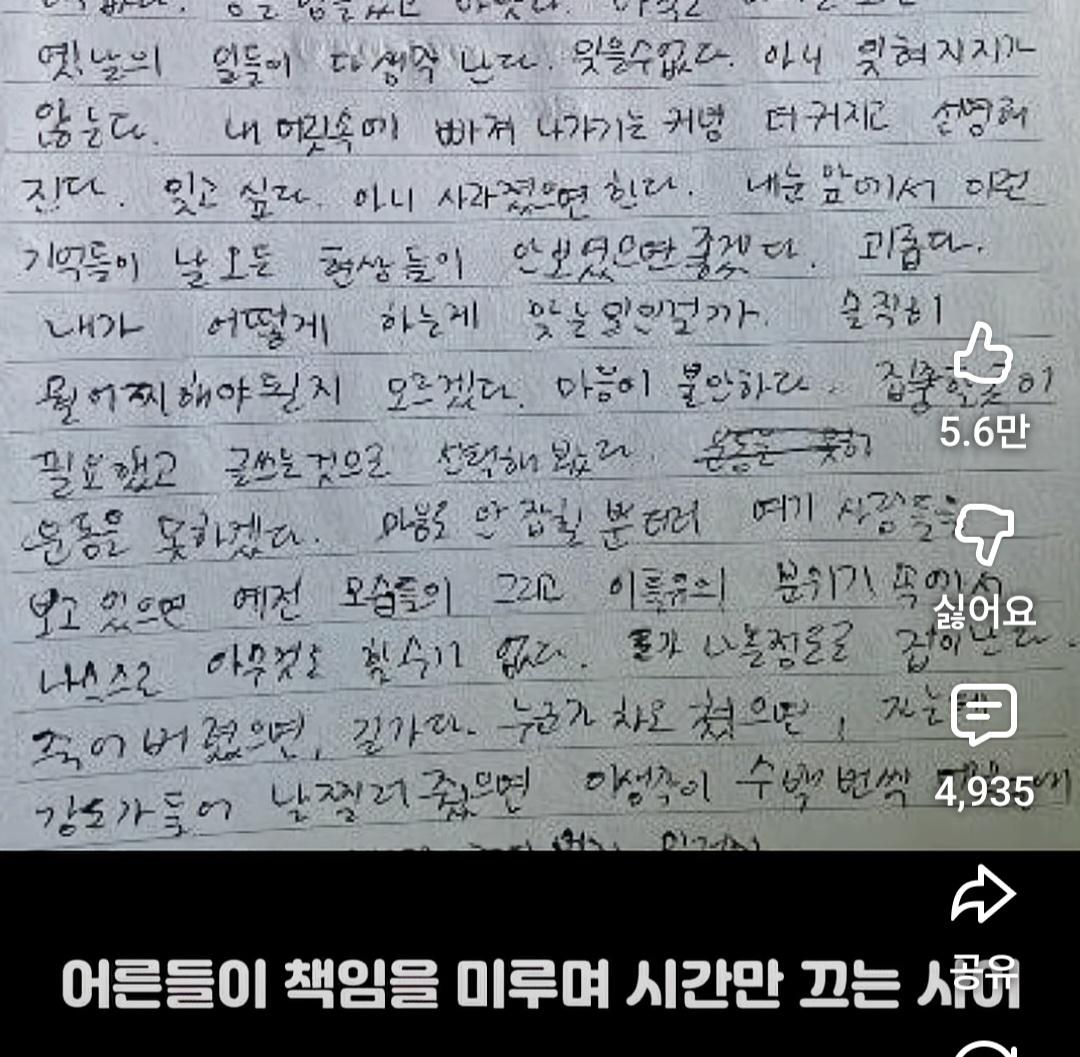 옛날의 일들이 다 생각 난다. 잊을수없다. 아니 잊혀지지가
않는다. 내 머릿속에 빠져 나가기는 커녕 더 커지고 선명해
진다. 잊고 싶다. 아니 사라졌으면 한다. 내눈 앞에서 이런
기억들이 날 모든 현상들이 안보였으면 좋겠다. 괴롭다.
내가 어떻게 하는게 맞는 일인걸까. 솔직히
뭘 어찌해야될지 모르겠다. 마음이 불안하다. 집중할
필요했고 글쓰는것으로 선택해 봤다.
운동을 못하겠다. 마음도 안 잡힐 뿐더러 여기 사람들을
보고 있으면 예전 모습들이 그리고 이특유의 분위기 속에서
나스스로 아무것도 할수가 없다. 나올정도로 겁이난다.
죽어버렸으면, 길가다. 누군가 차로 쳤으면, 자는데
강도가들어 날찔러줬으면 이생각이 수백번씩
5.6만
싫어요
4,935
공유
어른들이 책임을 미루며 시간만 끄는 사이